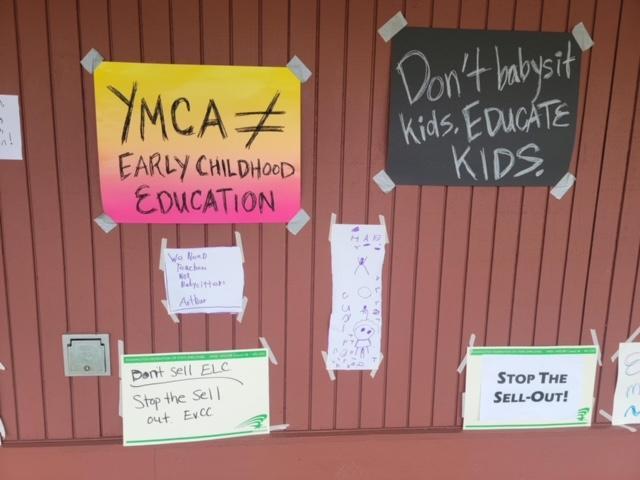 YMCA ≠
EARLY CHILDHOOD
EDUCATION
Don't babysit
kids. EDUCATE
KIDS.
We Need
Teachers
Not
Babysitters
Arthur
Dont Sell ELC
Stop the Sell
out. EvCC
STOP THE
SELL-OUT!